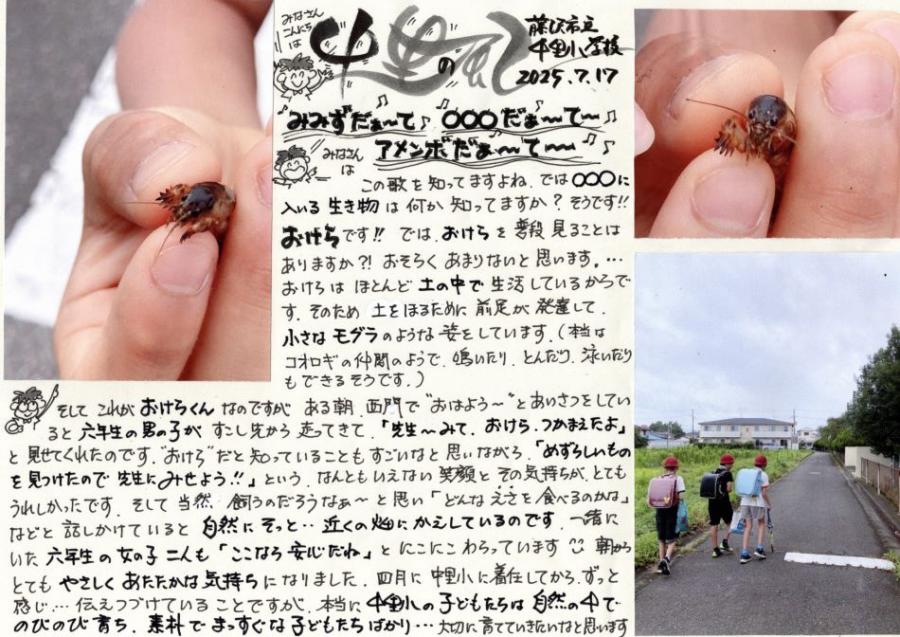 みなさん
こんにち
は
中里の風
蕨市立
中里小学校
2025.7.17
みみずだぁ〜て♪ 〇〇〇だぁ〜て〜♫
アメンボだぁ〜て〜♫♪
みなさん
は
この歌を知ってますよね。では〇〇〇に
入いる生き物は何か知ってますか?そうです!!
おけらです!!では、おけらを普段見ることは
ありますか?!おそらくあまりないと思います。…
おけらはほとんど土の中で生活しているからで
す。そのため土をほるために前足が発達して、
小さなモグラのような姿をしています。(本当は
コオロギの仲間のようで、鳴いたり、とんだり、泳いだり
もできるそうです。)
そしてこれがおけらくんなのですが ある朝、西門で"おはよう〜"とあいさつをしてい
ると六年生の男の子がすこし先から走ってきて、「先生〜みて、おけら、つかまえたよ」
と見せてくれたのです。"おけら"だと知っていることもすごいなと思いながら、「めずらしいもの
を見つけたので先生にみせよう!!」という、なんともいえない笑顔とその気持ちが、とても
うれしかったです。そして当然、飼うのだろうなぁ〜と思い「どんなえさを食べるのかな」
などと話しかけていると自然にそっと…近くの畑にかえしているのです。一緒に
いた六年生の女の子二人も「ここなら安心だね」とにこにこわらっています 朝から
とてもやさしくあたたかな気持ちになりました。四月に中里小に着任してから、ずっと
感じ…伝えつづけていることですが、本当に中里小の子どもたちは自然の中で
のびのび育ち、素朴でまっすぐな子どもたちばかり…大切に育てていきたいなと思います